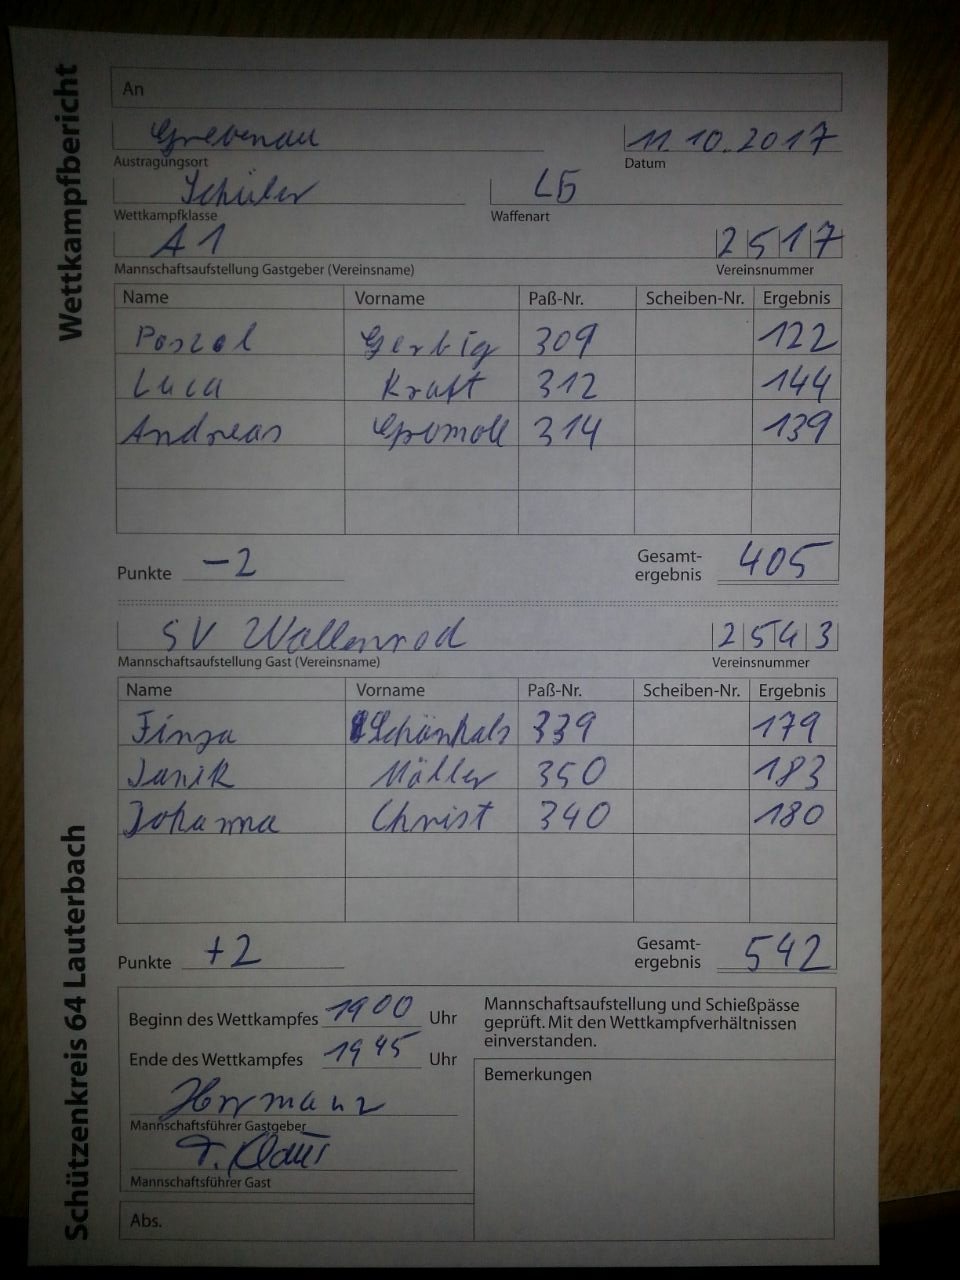 Wettkampfbericht
Schützenkreis 64 Lauterbach
An
Grebenau 11.10.2017
Austragungsort Datum
Schüler LG
Wettkampfklasse Waffenart
A1 2517
Mannschaftsaufstellung Gastgeber (Vereinsname) Vereinsnummer
Name Vorname Paß-Nr. Scheiben-Nr. Ergebnis
Pascal Gerbig 309 122
Luca Kraft 312 144
Andreas Gromoll 314 139
Punkte -2 Gesamt-
ergebnis 405
SV Wallenrod 2543
Mannschaftsaufstellung Gast (Vereinsname) Vereinsnummer
Name Vorname Paß-Nr. Scheiben-Nr. Ergebnis
Finja Schönhals 339 179
Janik Möller 350 183
Johanna Christ 340 180
Punkte +2 Gesamt-
ergebnis 542
Beginn des Wettkampfes 19 00 Uhr
Ende des Wettkampfes 19 45 Uhr
Mannschaftsaufstellung und Schießpässe
geprüft. Mit den Wettkampfverhältnissen
einverstanden.
Bemerkungen
Mannschaftsführer Gastgeber
T. Klaus
Mannschaftsführer Gast
Abs.